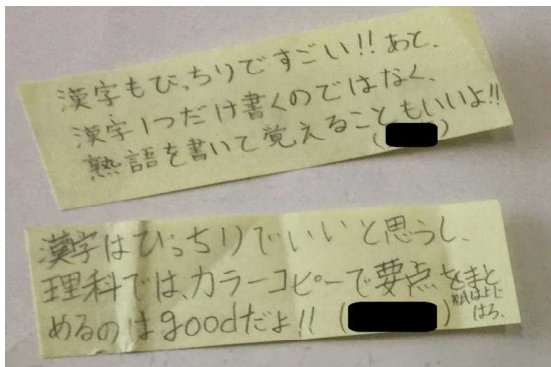 漢字もびっちりですごい!!あと、
漢字1つだけ書くのではなく、
熟語を書いて覚えることもいいよ!!
(      )
漢字はびっちりでいいと思うし、
理科では、カラーコピーで要点をまと
めるのはgoodだよ!! (      )
はろ、